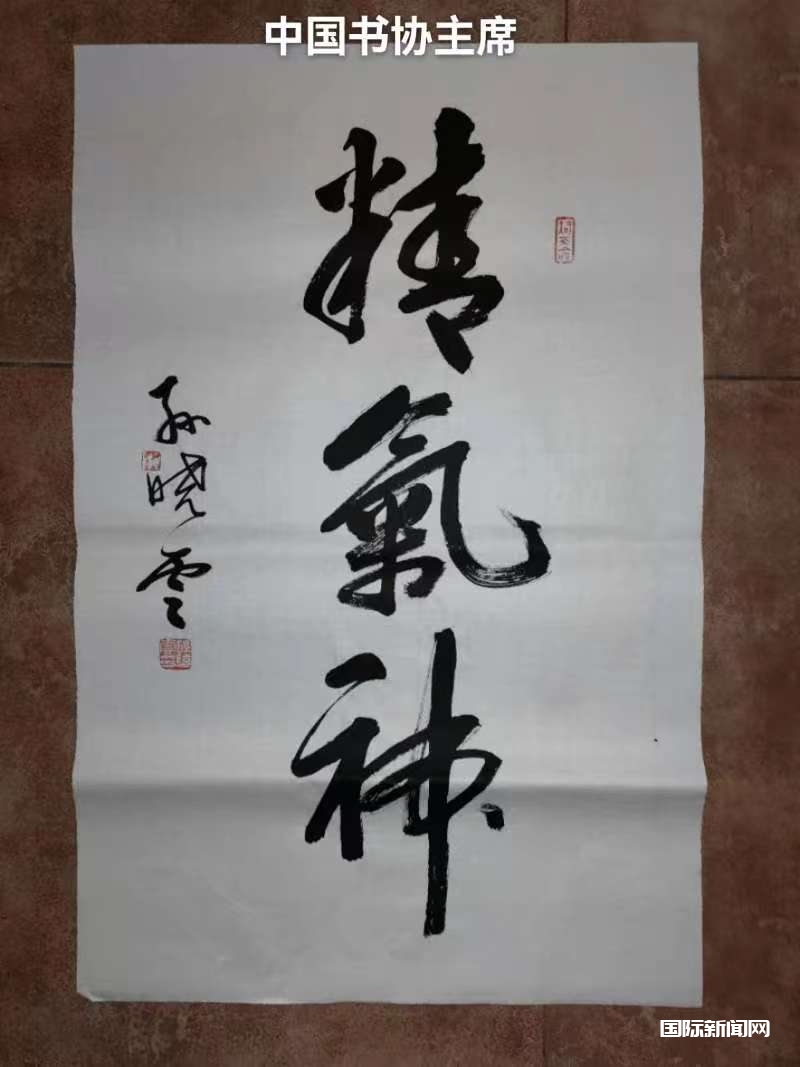 中国书协主席
精氣神
孙晓云
国际新闻网